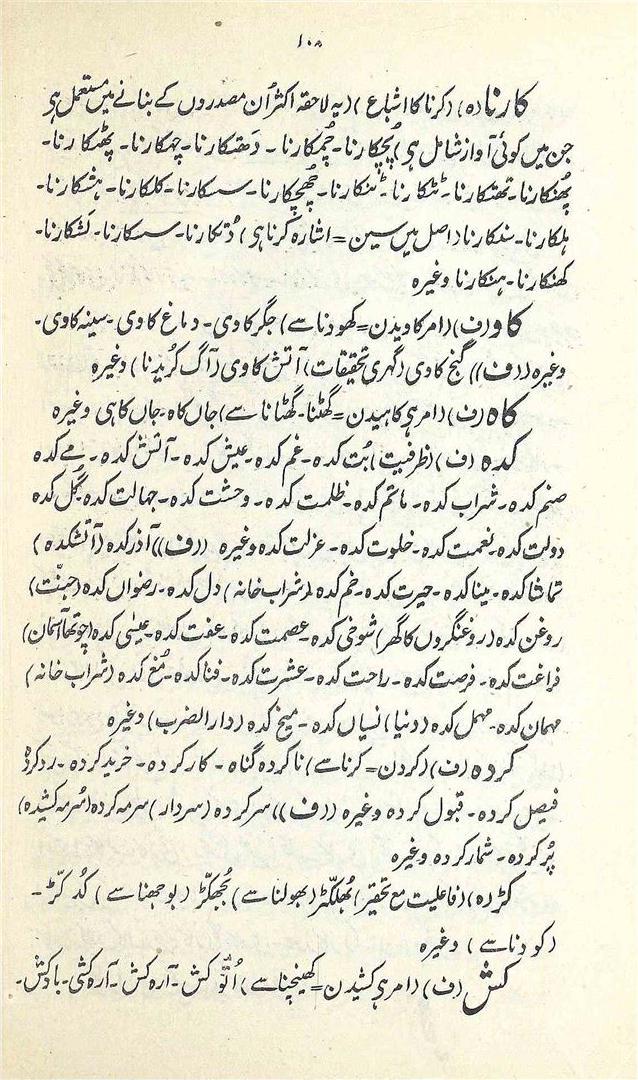 ۱۰۸
کارنا (ہ) (کرنا کا اشباع) (یہ لاحقہ اکثر اُن مصدروں کے بنانے میں مستعمل ہی
جن میں کوئی آواز شامل ہی) پُچکارنا۔ چُمکارنا۔ دَھتکارنا۔ چہکارنا۔ پھٹکارنا۔
پُھنکارنا۔ تھتکارنا۔ ٹٹکارنا۔ ٹنکارنا۔ چُھچکارنا۔ سسکارنا۔ کلکارنا۔ ہشکارنا۔
ہلکارنا۔ سنکارنا (اصل میں سین = اشارہ کرنا ہی) دُتکارنا۔ سسکارنا۔ لَشکارنا۔
کھنکارنا۔ ہنکارنا وغیرہ
کاو (ف) (امر کاویدن = کھودنا سے) جگر کاوی۔ دماغ کاوی۔ سینہ کاوی۔
وغیرہ ((ف)) گنج کاوی (گہری تحقیقات) آتش کاوی (آگ کُریدنا) وغیرہ
کاہ (ف) (امر ہی کاہیدن = گھٹنا۔ گھٹانا سے) جاں کاہ۔ جاں کاہی وغیرہ
کدہ (ف) (ظرفیت) بُت کدہ۔ غم کدہ۔ عیش کدہ۔ آتش کدہ۔ مے کدہ
صنم کدہ۔ شراب کدہ۔ ماتم کدہ۔ ظلمت کدہ۔ وحشت کدہ۔ جہالت کدہ۔ گُل کدہ
دولت کدہ۔ نعمت کدہ۔ خلوت کدہ۔ عزلت کدہ وغیرہ ((ف)) آذر کدہ (آتشکدہ)
تماشا کدہ۔ مینا کدہ۔ حیرت کدہ۔ خم کدہ (شراب خانہ) دل کدہ۔ رضواں کدہ (جنّت)
روغن کدہ (روغنگروں کا گھر) شوخی کدہ۔ عصمت کدہ۔ عفت کدہ۔ عیسٰی کدہ (چوتھا آسمان)
فراغت کدہ۔ فرصت کدہ۔ راحت کدہ۔ عشرت کدہ۔ فنا کدہ۔ مُغ کدہ (شراب خانہ)
مہمان کدہ۔ مہمل کدہ (دنیا) نسیاں کدہ۔ میخ کدہ (دار الضرب) وغیرہ
کردہ (ف) (کردن = کرنا سے) ناکردہ گناہ۔ کار کردہ۔ خرید کردہ۔ رد کردہ
فیصل کردہ۔ قبول کردہ وغیرہ ((ف)) سر کردہ (سردار) سرمہ کردہ (سُرمہ کشیدہ)
پُر کردہ۔ شمار کردہ وغیرہ
کڑ (ہ) (فاعلیت مع تحقیر) بُھلکّڑ (بھولنا سے) بُجھکڑ (بوجھنا سے) کُدکّڑ۔
(کودنا سے) وغیرہ
کش (ف) (امر ہی کشیدن = کھینچنا سے) اُتّو کش۔ آرہ کش۔ آرہ کشی۔ بادکش۔